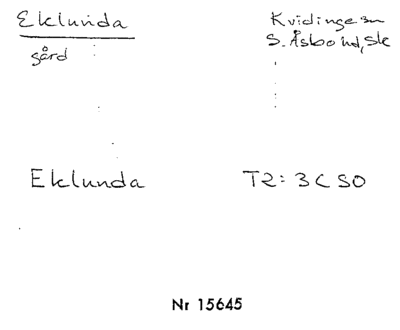 Eklunda
Kvidinge sn
gård
S. Åsbo hd, Sk
Eklunda
T2: 3 C SO
Nr 15645